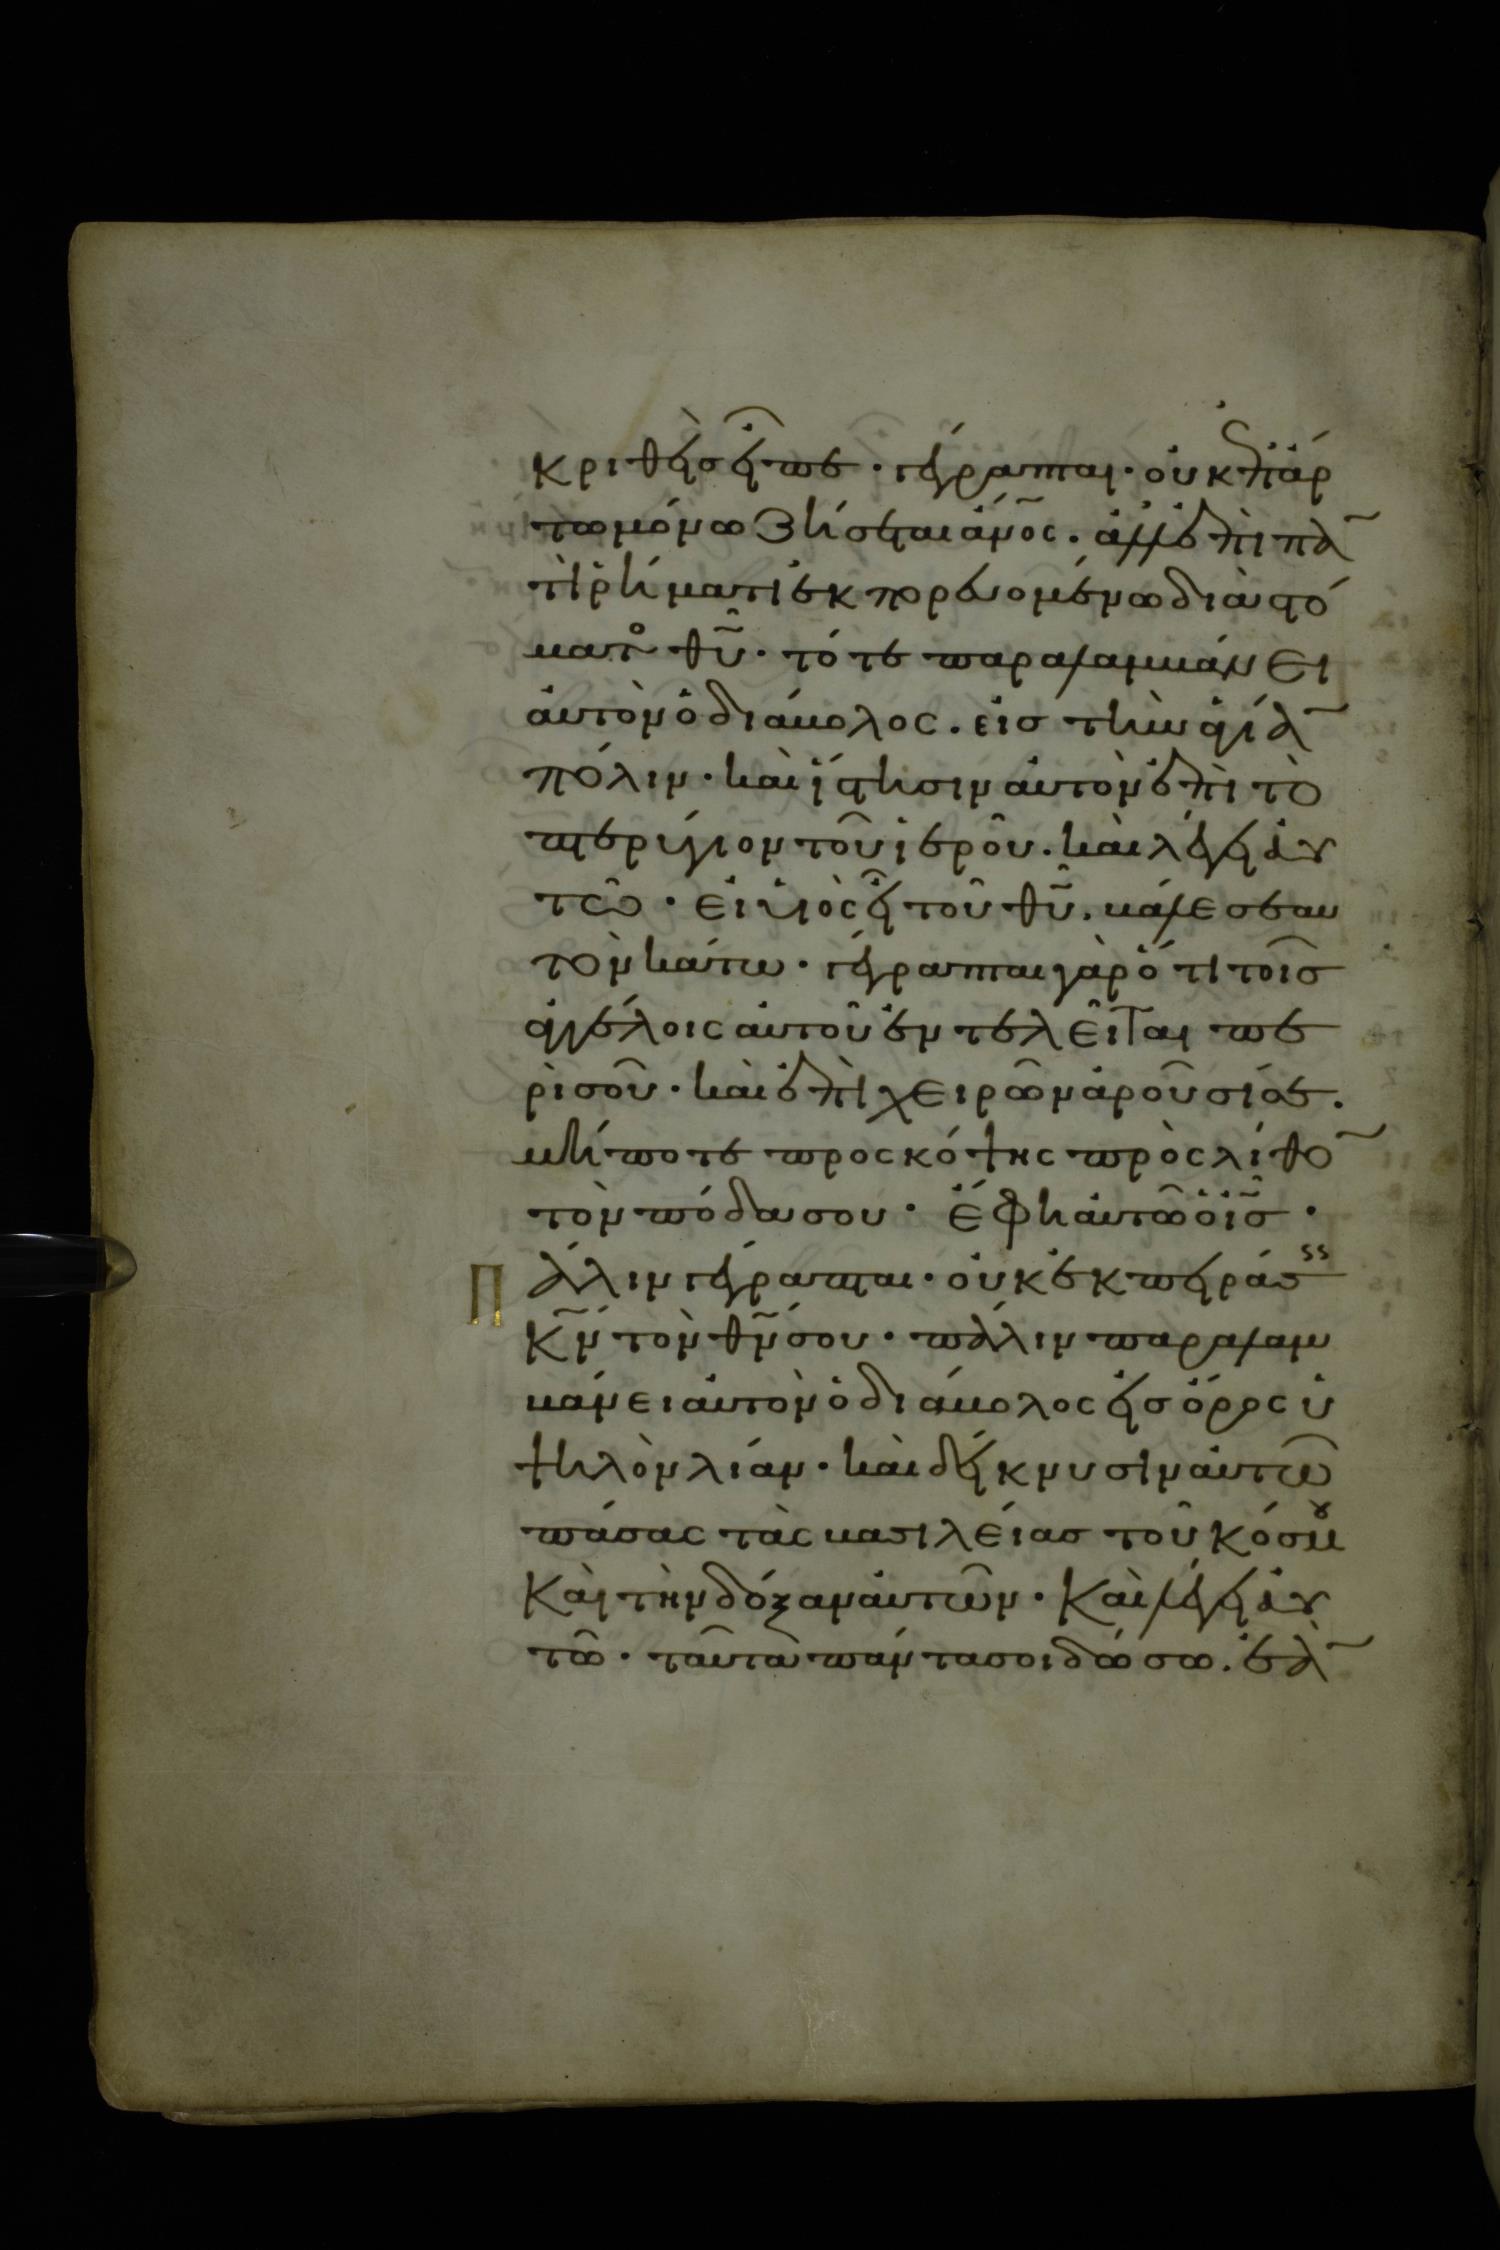 κριθεὶς εἶπε · γέγραπται · οὐκ ἐπ' ἄρ
τω μόνω ζήσεται ἄν̅ο̅ς · ἀλλ' ἐπὶ πα̅
τὶ ῥήματι ἐκπορευομένω διὰ στό
ματο θ̅υ̅ · τότε παραλαμβάνει
αὐτὸν ὁ διάβολος · εἰσ τὴν ἁγίαν̅
πόλιν · καὶ ἵστησιν αὐτὸν ἐπὶ τὸ
πτερύγιον τοῦ ἱεροῦ · καὶ λέγει αυ
τῶ · εἰ υἱὸς εἶ τοῦ θ̅υ̅ · βάλε σεαυ
τὸν κάτω · γέγραπται γὰρ ὅτι τοῖσ
ἀγγέλοις αὐτοῦ ἐντελεῖται πε
ρὶ σοῦ · καὶ ἐπὶ χειρῶν ἀροῦσί σε ·
μήποτε προσκόψης πρὸς λίθο̅
τὸν πόδα σου · ἔφη αὐτῶ ὁ ι̅σ̅ ·
Πάλιν γέγραπται · οὐκ ἐκπειράσεισ
κ̅ν̅ τὸν θ̅ν̅ σου · πάλιν παραλαμ
βάνει αὐτὸν ὁ διάβολος εἰσ ὄρος ὑ
ψηλὸν λίαν · καὶ δείκνυσιν αὐτῶ
πάσας τὰς βασιλείασ τοῦ κόσμου
καὶ τὴν δόξαν αὐτῶν · καὶ λέγει αὐ
τῶ · ταῦτα πάντα σοι δώσω · ἐὰ̅